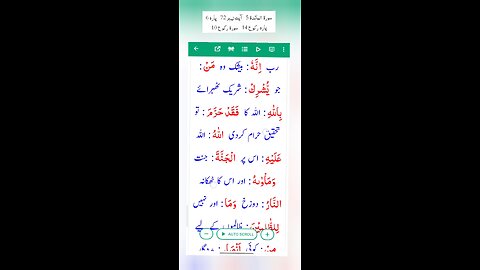 سورة المائدة 5 آیت نمبر 72 پارہ 6
پارہ رکوع 14 سورة رکوع 10
رب اِنَّهٗ : بیشک وہ مَنْ :
جو یُّشْرِكْ : شریک ٹھہرائے
بِاللّٰهِ : اللہ کا فَقَدْ حَرَّمَ : تو
تحقیق حرام کردی اللّٰهُ : اللہ
عَلَیْهِ : اس پر الْجَنَّةَ : جنت
وَمَاْوٰىهُ : اور اس کا ٹھکانہ
النَّارُ : دوزخ وَمَا : اور نہیں
لِلظّٰلِمِیْنَ : ظالموں کے لیے
AUTO SCROLL
مِنْ : کوئی اَنْصَارٍ : مددگار